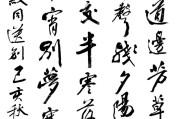 道邊芳草
聲殘夕陽
交半零落
宵別夢寒
同送別己亥秋